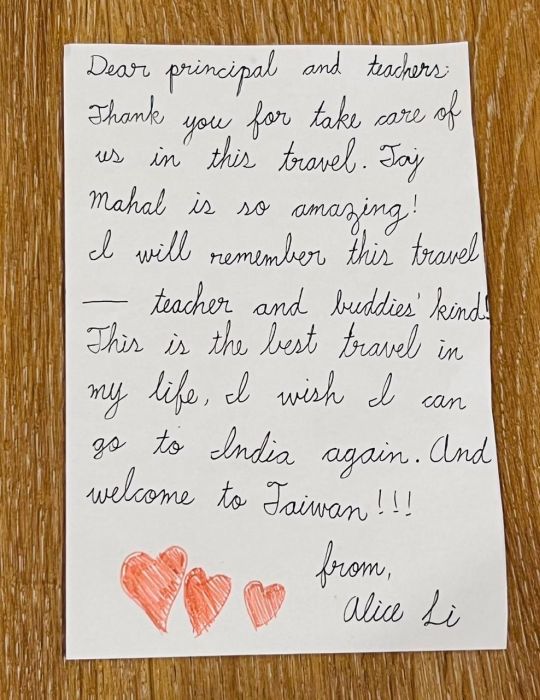 Dear principal and teachers:
Thank you for take care of
us in this travel. Taj
Mahal is so amazing!
I will remember this travel
— teacher and buddies' kind!
This is the best travel in
my life, I wish I can
go to India again. And
welcome to Taiwan!!!
from,
Alice Li